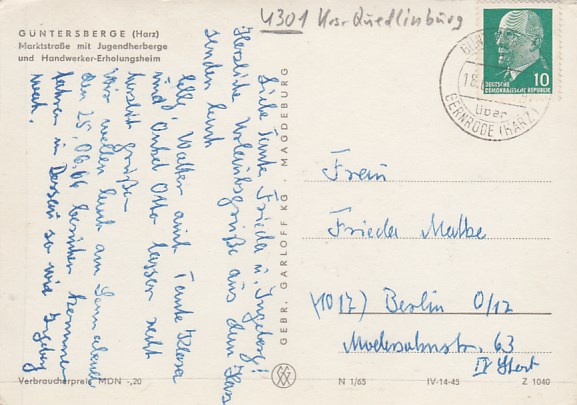 GÜNTERSBERGE (Harz)
Marktstraße mit Jugendherberge
und Handwerker-Erholungsheim
4301 Krs. Quedlinburg
10
DEUTSCHE
DEMOKRATISCHE REPUBLIK
18.
über
GERNRODE (HARZ)
Liebe Tante Frieda u. Ingeborg!
Herzliche Urlaubsgrüße aus dem Harz
senden Euch
Walter und Tante Klara
und Onkel Otto lassen recht
herzlich grüßen
Wir wollen Euch am
den 25.06.66 besuchen kommen
fahren in Dessau so wie Ingeborg
GEBR. GARLOFF KG., MAGDEBURG
Frau
Frieda
(1017) Berlin O/17
63
Verbraucherpreis MDN -,20
N 1/65
IV-14-45
Z 1040